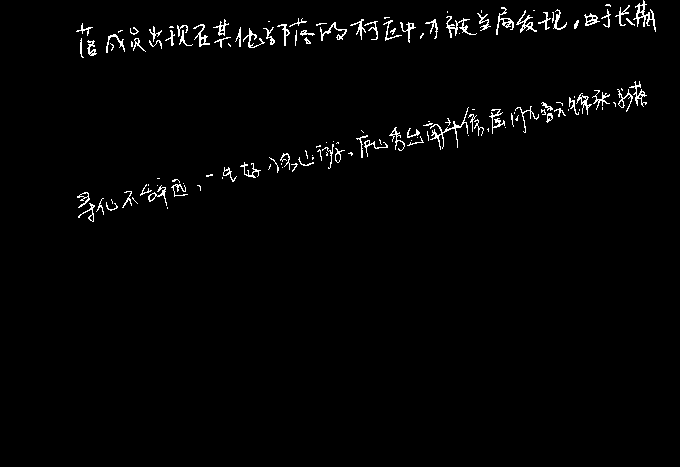 落成员出现在其他部落的村庄中,才被当局发现。由于长期
寻仙不辞远,一生好入名山游。庐山秀出南斗傍,屏风九叠云锦张,影落